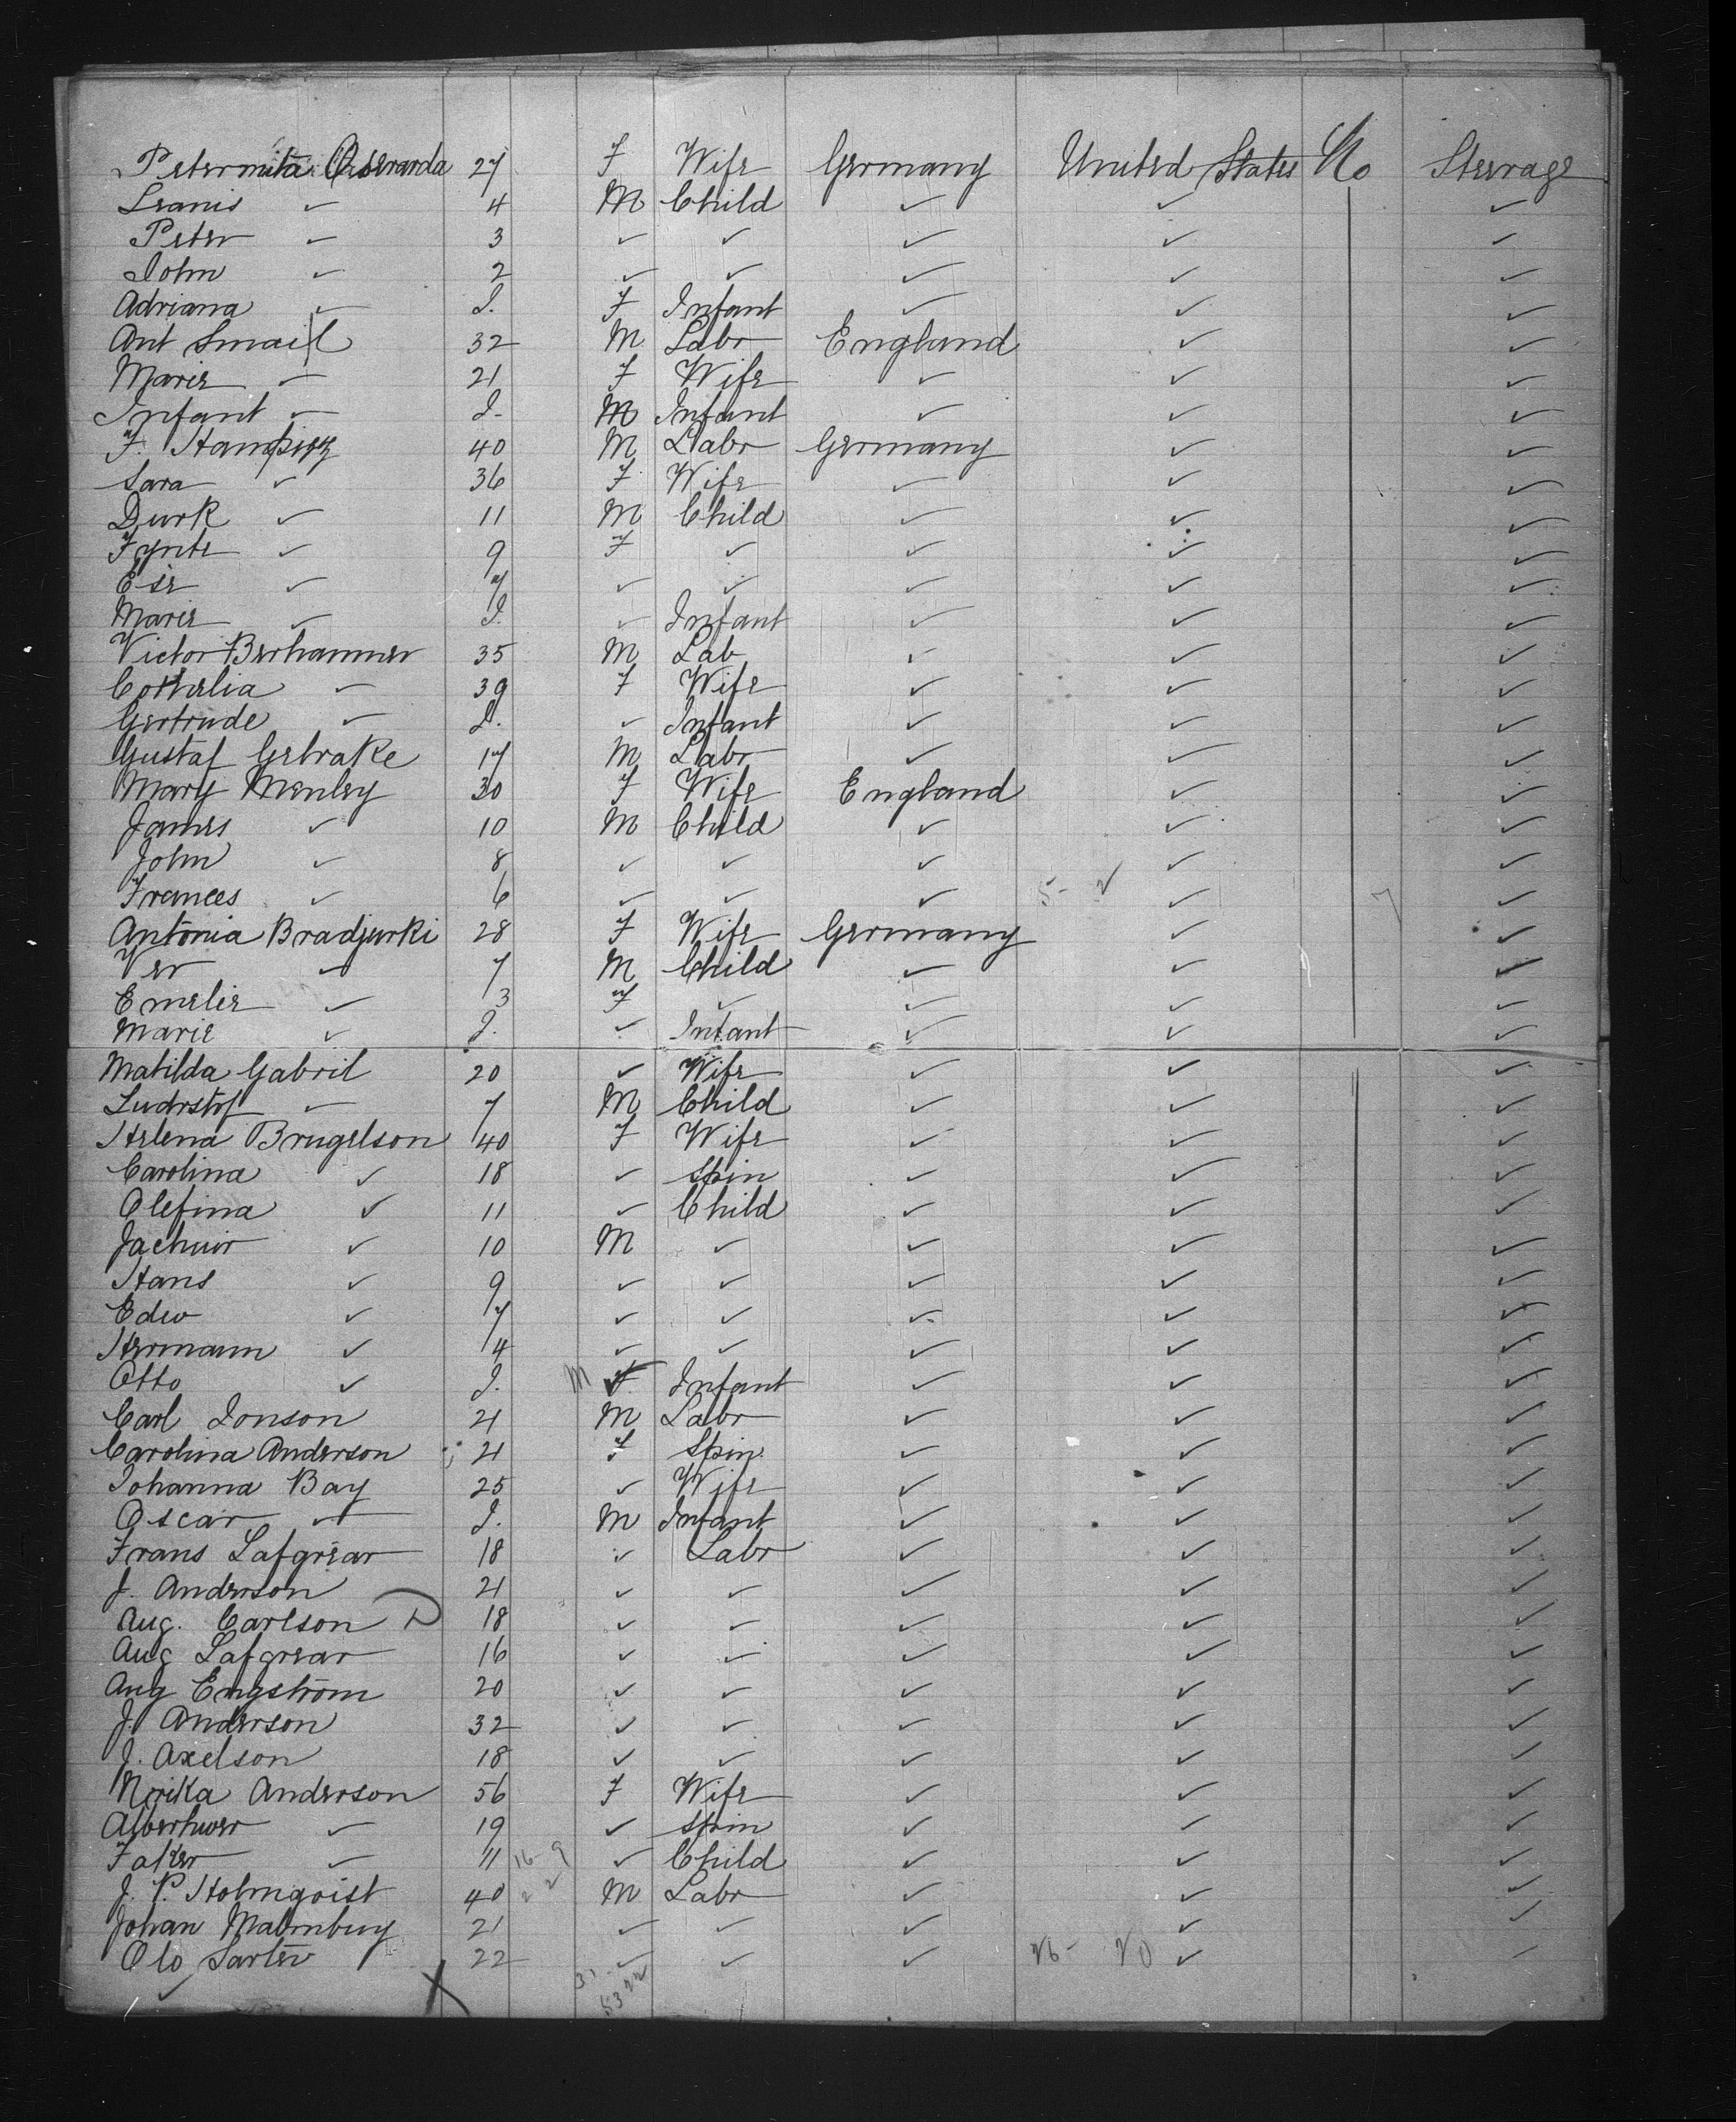 Petermita Oseranda 27 F Wife Germany United States No Steerage
Leanis ✓ 4 M Child ✓ ✓ ✓
Peter ✓ 3 ✓ ✓ ✓ ✓ ✓
John ✓ 2 ✓ ✓ ✓ ✓ ✓
Adriana ✓ I. F Infant ✓ ✓ ✓
Ant Smail 32 M Labr England ✓ ✓
Marie ✓ 21 F Wife ✓ ✓ ✓
Infant ✓ I. M Infant ✓ ✓ ✓
F. 40 M Labr Germany ✓ ✓
Sara ✓ 36 F Wife ✓ ✓ ✓
Durk ✓ 11 M Child ✓ ✓ ✓
Fynte ✓ 9 F ✓ ✓ ✓ ✓
Esie ✓ 7 ✓ ✓ ✓ ✓ ✓
Marie ✓ I. ✓ Infant ✓ ✓ ✓
Victor Berhammer 35 M Lab ✓ ✓ ✓
Cornelia ✓ 39 F Wife ✓ ✓ ✓
Gertrude ✓ I. ✓ Infant ✓ ✓ ✓
Gustaf Gebrake 17 M Labr ✓ ✓ ✓
Mary Menley 30 F Wife England ✓ ✓
James ✓ 10 M Child ✓ ✓ ✓
John ✓ 8 ✓ ✓ ✓ ✓ ✓
Frances ✓ 6 ✓ ✓ ✓ 5- 2 ✓ ✓
Antonia Bradjurki 28 F Wife Germany ✓ ✓
Ver ✓ 7 M Child ✓ ✓ ✓
Emelie ✓ 3 F ✓ ✓ ✓ ✓
Marie ✓ I. ✓ Infant ✓ ✓ ✓
Matilda Gabril 20 ✓ Wife ✓ ✓ ✓
✓ 7 M Child ✓ ✓ ✓
Helena Brugelson 40 F Wife ✓ ✓ ✓
Carolina ✓ 18 ✓ Spin ✓ ✓ ✓
Olefina ✓ 11 ✓ Child ✓ ✓ ✓
Jachuir ✓ 10 M ✓ ✓ ✓ ✓
Hans ✓ 9 ✓ ✓ ✓ ✓ ✓
Edw ✓ 7 ✓ ✓ ✓ ✓ ✓
Hermann ✓ 4 ✓ ✓ ✓ ✓ ✓
Otto ✓ I. M F. Infant ✓ ✓ ✓
Carl Jonson 21 M Labr ✓ ✓ ✓
Carolina Anderson 21 F Spin. ✓ ✓ ✓
Johanna Bay 25 ✓ Wife ✓ ✓ ✓
Oscar ✓ I. M Infant ✓ ✓ ✓
Frans Lafgrear 18 ✓ Labr ✓ ✓ ✓
J. Anderson 21 ✓ ✓ ✓ ✓ ✓
Aug. Carlson 18 ✓ ✓ ✓ ✓ ✓
Aug Lafgrear 16 ✓ ✓ ✓ ✓ ✓
Aug Engstrom 20 ✓ ✓ ✓ ✓ ✓
J. Anderson 32 ✓ ✓ ✓ ✓ ✓
J. Axelson 18 ✓ ✓ ✓ ✓ ✓
Nrika Anderson 56 F Wife ✓ ✓ ✓
Alberhwer ✓ 19 ✓ Spin ✓ ✓ ✓
Faker ✓ 11 ✓ Child ✓ ✓ ✓
J. P. Holmqvist 40 M Labr ✓ ✓ ✓
Johan Malmburg 21 ✓ ✓ ✓ ✓ ✓
Olo Sarter 22 ✓ ✓ ✓ 26- 20 ✓ ✓